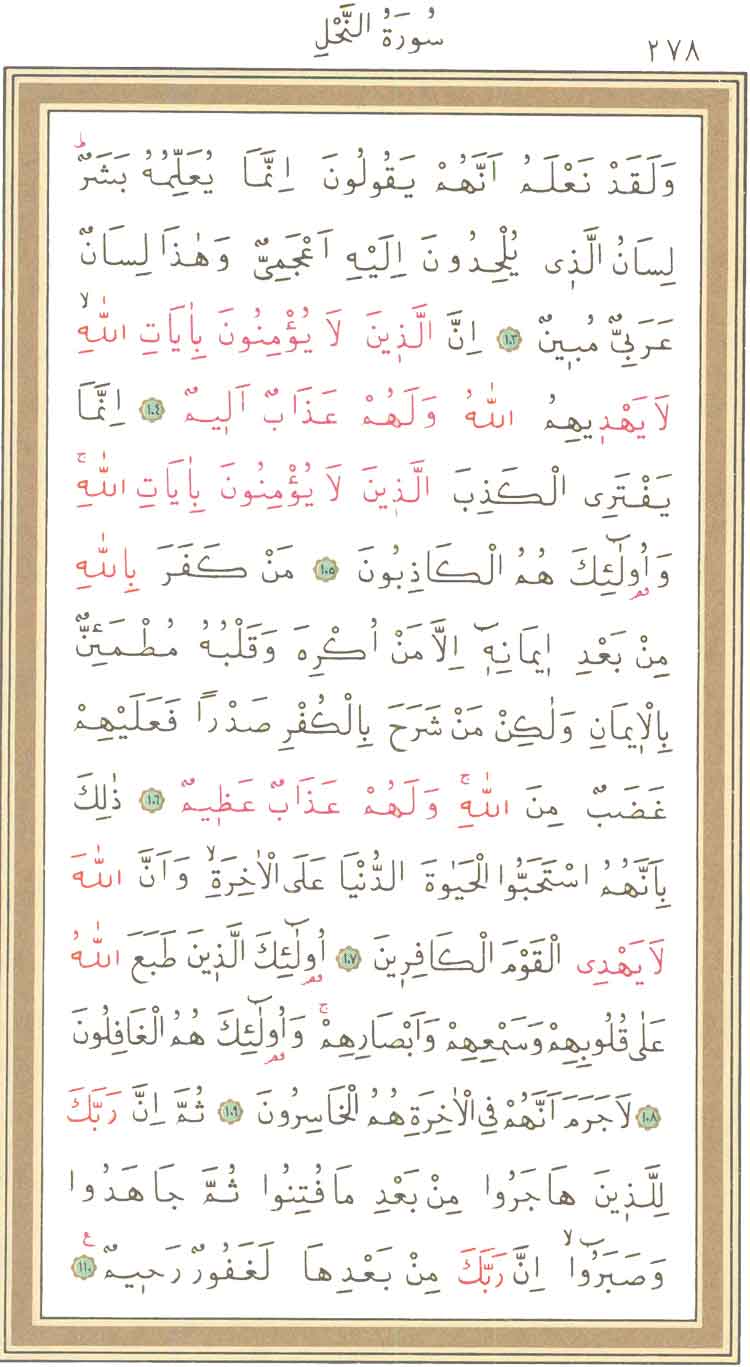 سُورَةُ النَّحْلِ
٢٧٨
وَلَقَدْ نَعْلَمُ اَنَّهُمْ يَقُولُونَ اِنَّمَا يُعَلِّمُهُ بَشَرٌۜ
لِسَانُ الَّذٖى يُلْحِدُونَ اِلَيْهِ اَعْجَمِىٌّ وَهٰذَا لِسَانٌ
عَرَبِىٌّ مُبٖينٌ ﴿١٠٣﴾ اِنَّ الَّذٖينَ لَا يُؤْمِنُونَ بِاٰيَاتِ اللّٰهِۙ
لَا يَهْدٖيهِمُ اللّٰهُ وَلَهُمْ عَذَابٌ اَلٖيمٌ ﴿١٠٤﴾ اِنَّمَا
يَفْتَرِى الْكَذِبَ الَّذٖينَ لَا يُؤْمِنُونَ بِاٰيَاتِ اللّٰهِۚ
وَاُولٰٓئِكَ هُمُ الْكَاذِبُونَ ﴿١٠٥﴾ مَنْ كَفَرَ بِاللّٰهِ
مِنْ بَعْدِ اٖيمَانِهٖٓ اِلَّا مَنْ اُكْرِهَ وَقَلْبُهُ مُطْمَئِنٌّ
بِالْاٖيمَانِ وَلٰكِنْ مَنْ شَرَحَ بِالْكُفْرِ صَدْرًا فَعَلَيْهِمْ
غَضَبٌ مِنَ اللّٰهِۚ وَلَهُمْ عَذَابٌ عَظٖيمٌ ﴿١٠٦﴾ ذٰلِكَ
بِاَنَّهُمُ اسْتَحَبُّوا الْحَيٰوةَ الدُّنْيَا عَلَى الْاٰخِرَةِۙ وَاَنَّ اللّٰهَ
لَا يَهْدِى الْقَوْمَ الْكَافِرٖينَ ﴿١٠٧﴾ اُولٰٓئِكَ الَّذٖينَ طَبَعَ اللّٰهُ
عَلٰى قُلُوبِهِمْ وَسَمْعِهِمْ وَاَبْصَارِهِمْۚ وَاُولٰٓئِكَ هُمُ الْغَافِلُونَ
﴿١٠٨﴾ لَا جَرَمَ اَنَّهُمْ فِى الْاٰخِرَةِ هُمُ الْخَاسِرُونَ ﴿١٠٩﴾ ثُمَّ اِنَّ رَبَّكَ
لِلَّذٖينَ هَاجَرُوا مِنْ بَعْدِ مَا فُتِنُوا ثُمَّ جَاهَدُوا
وَصَبَرُٓواۙ اِنَّ رَبَّكَ مِنْ بَعْدِهَا لَغَفُورٌ رَحٖيمٌ ﴿١١٠﴾ ع